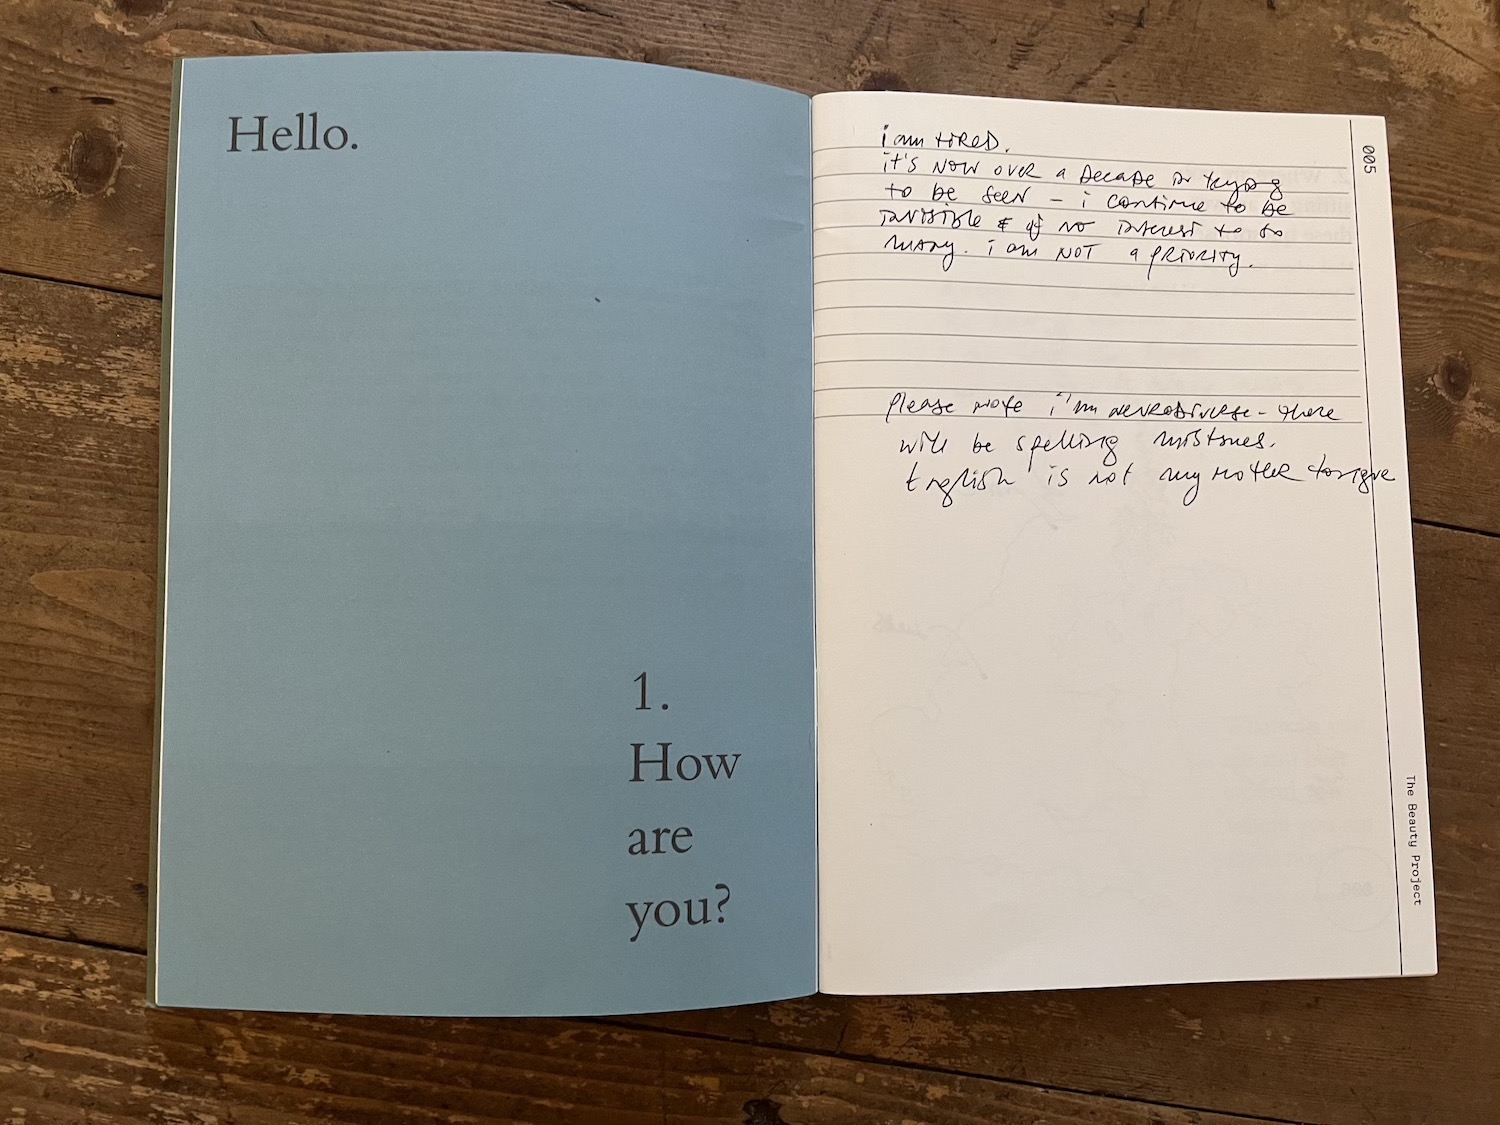 Hello.
1.
How
are
you?
005
i am tired.
it's now over a decade in trying
to be seen – i continue to be
invisible & of no interest to so
many. i am not a priority.
please note i'm neurodiverse – there
will be spelling mistakes.
English is not my mother tongue
The Beauty Project